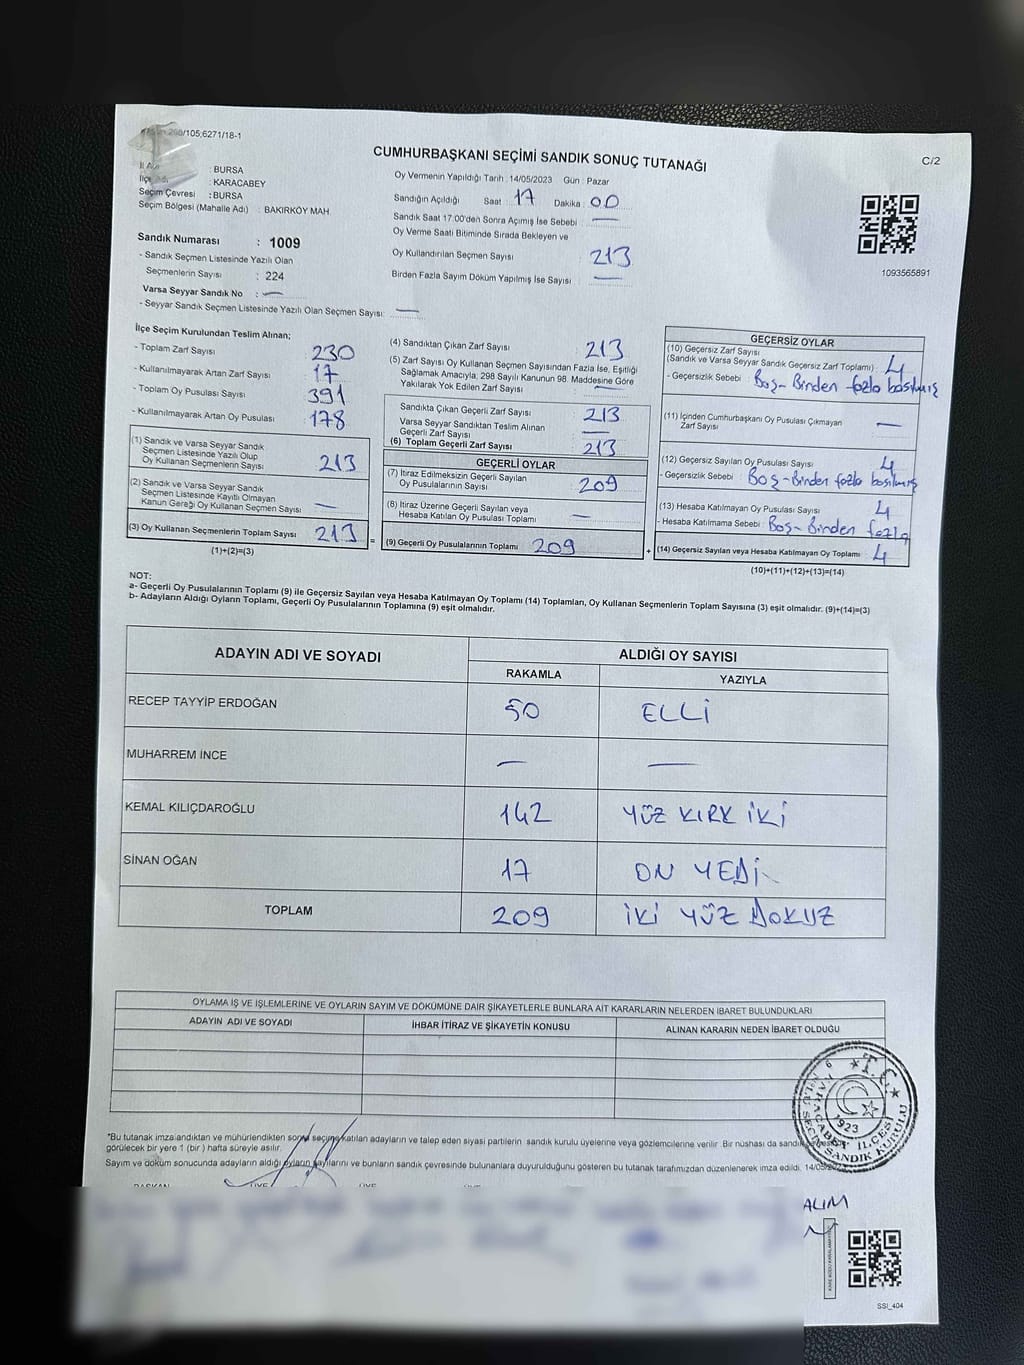 CUMHURBAŞKANI SEÇİMİ SANDIK SONUÇ TUTANAĞI
C/2
: BURSA
: KARACABEY
Seçim Çevresi : BURSA
Seçim Bölgesi (Mahalle Adı) : BAKIRKÖY MAH
Sandık Numarası : 1009
- Sandık Seçmen Listesinde Yazılı Olan
Seçmenlerin Sayısı : 224
Varsa Seyyar Sandık No : —
- Seyyar Sandık Seçmen Listesinde Yazılı Olan Seçmen Sayısı: —
Oy Vermenin Yapıldığı Tarih : 14/05/2023 Gün : Pazar
Sandığın Açıldığı Saat : 17 Dakika : 00
Sandık Saat 17.00'den Sonra Açımış İse Sebebi : —
Oy Verme Saati Bitiminde Sırada Bekleyen ve
Oy Kullandırılan Seçmen Sayısı : 213
Birden Fazla Sayım Döküm Yapılmış İse Sayısı : —
1093565891
İlçe Seçim Kurulundan Teslim Alınan;
- Toplam Zarf Sayısı : 230
- Kullanılmayarak Artan Zarf Sayısı : 17
- Toplam Oy Pusulası Sayısı : 391
- Kullanılmayarak Artan Oy Pusulası : 178
(1) Sandık ve Varsa Seyyar Sandık
Seçmen Listesinde Yazılı Olup
Oy Kullanan Seçmenlerin Sayısı : 213
(2) Sandık ve Varsa Seyyar Sandık
Seçmen Listesinde Kayıtlı Olmayan
Kanun Gereği Oy Kullanan Seçmen Sayısı : —
(3) Oy Kullanan Seçmenlerin Toplam Sayısı : 213
(1)+(2)=(3)
(4) Sandıktan Çıkan Zarf Sayısı : 213
(5) Zarf Sayısı Oy Kullanan Seçmen Sayısından Fazla İse, Eşitliği
Sağlamak Amacıyla, 298 Sayılı Kanunun 98. Maddesine Göre
Yakılarak Yok Edilen Zarf Sayısı : —
Sandıkta Çıkan Geçerli Zarf Sayısı : 213
Varsa Seyyar Sandıktan Teslim Alınan
Geçerli Zarf Sayısı : —
(6) Toplam Geçerli Zarf Sayısı : 213
GEÇERLİ OYLAR
(7) İtiraz Edilmeksizin Geçerli Sayılan
Oy Pusulalarının Sayısı : 209
(8) İtiraz Üzerine Geçerli Sayılan veya
Hesaba Katılan Oy Pusulası Toplamı : —
= (9) Geçerli Oy Pusulalarının Toplamı : 209
GEÇERSİZ OYLAR
(10) Geçersiz Zarf Sayısı
(Sandık ve Varsa Seyyar Sandık Geçersiz Zarf Toplamı) : 4
- Geçersizlik Sebebi : Boş-Binden fazla basılmış
(11) İçinden Cumhurbaşkanı Oy Pusulası Çıkmayan
Zarf Sayısı : —
(12) Geçersiz Sayılan Oy Pusulası Sayısı : 4
- Geçersizlik Sebebi : Boş-Binden fazla basılmış
(13) Hesaba Katılmayan Oy Pusulası Sayısı : 4
- Hesaba Katılmama Sebebi : Boş-Binden fazla
+ (14) Geçersiz Sayılan veya Hesaba Katılmayan Oy Toplamı : 4
(10)+(11)+(12)+(13)=(14)
NOT:
a- Geçerli Oy Pusulalarının Toplamı (9) ile Geçersiz Sayılan veya Hesaba Katılmayan Oy Toplamı (14) Toplamları, Oy Kullanan Seçmenlerin Toplam Sayısına (3) eşit olmalıdır. (9)+(14)=(3)
b- Adayların Aldığı Oyların Toplamı, Geçerli Oy Pusulalarının Toplamına (9) eşit olmalıdır.
ADAYIN ADI VE SOYADI ALDIĞI OY SAYISI
RAKAMLA YAZIYLA
RECEP TAYYİP ERDOĞAN 50 ELLİ
MUHARREM İNCE — —
KEMAL KILIÇDAROĞLU 142 YÜZ KIRK İKİ
SİNAN OĞAN 17 ON YEDİ
TOPLAM 209 İKİ YÜZ DOKUZ
OYLAMA İŞ VE İŞLEMLERİNE VE OYLARIN SAYIM VE DÖKÜMÜNE DAİR ŞİKAYETLERLE BUNLARA AİT KARARLARIN NELERDEN İBARET BULUNDUKLARI
ADAYIN ADI VE SOYADI İHBAR İTİRAZ VE ŞİKAYETİN KONUSU ALINAN KARARIN NEDEN İBARET OLDUĞU
T.C.
KARACABEY İLÇESİ
1923
SANDIK KURULU
*Bu tutanak imzalandıktan ve mühürlendikten sonra seçime katılan adayların ve talep eden siyasi partilerin sandık kurulu üyelerine veya gözlemcilerine verilir. Bir nüshası da
görülecek bir yere 1 (bir) hafta süreyle asılır.
Sayım ve döküm sonucunda adayların aldığı oyların sayılarını ve bunların sandık çevresinde bulunanlara duyurulduğunu gösteren bu tutanak tarafımızdan düzenlenerek imza edildi.
BAŞKAN ÜYE ÜYE
ALIM
SSI_404